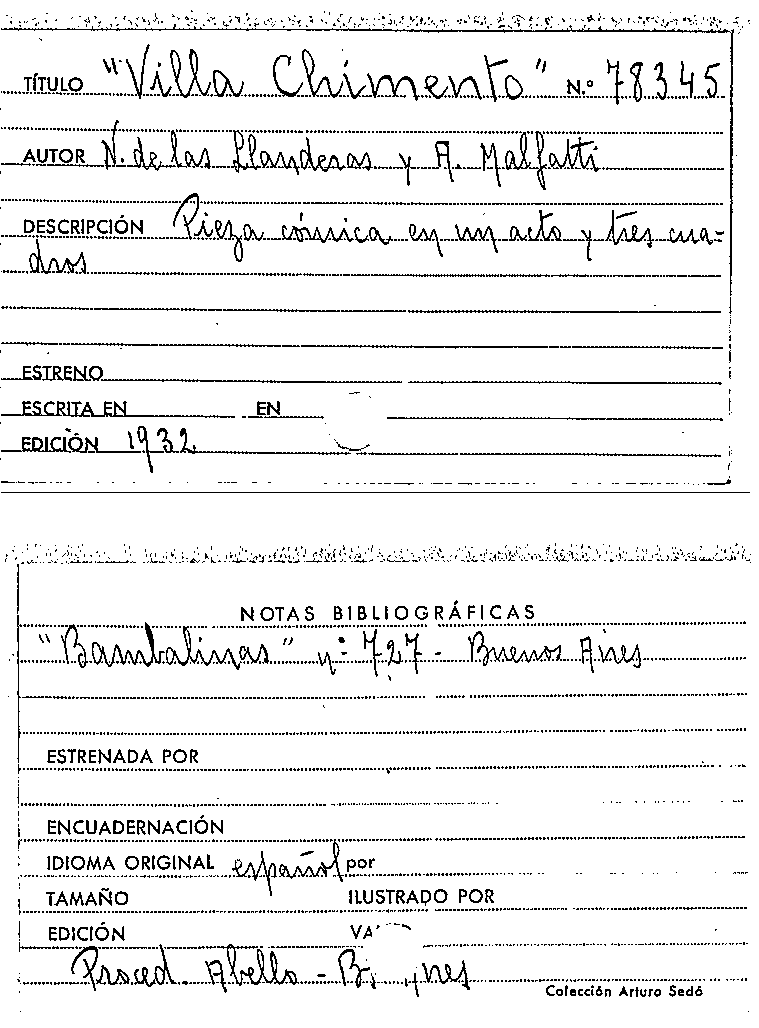 TÍTULO "Villa Chimento" N.º 78345
AUTOR N. de las Llanderas y A. Malfatti
DESCRIPCIÓN Pieza cómica en un acto y tres cua-
dros
ESTRENO
ESCRITA EN EN
EDICIÓN 1932
NOTAS BIBLIOGRÁFICAS
"Bambalinas" nº 727 - Buenos Aires
ESTRENADA POR
ENCUADERNACIÓN
IDIOMA ORIGINAL español por
TAMAÑO ILUSTRADO POR
EDICIÓN VA
Proced. Abello - B
Colección Arturo Sedó